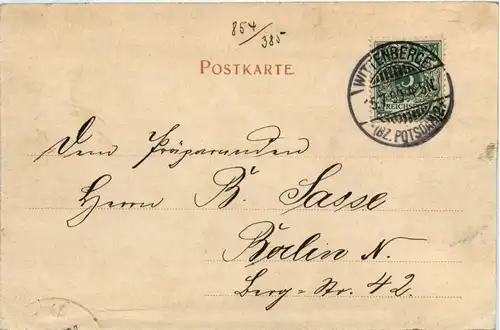 854/385
POSTKARTE.
WITTENBERGE
5
REICHSPOST
(BZ. POTSDAM)
Dem Präparanden
Herrn B. Sasse
Berlin N.
Berg-Str. 42.